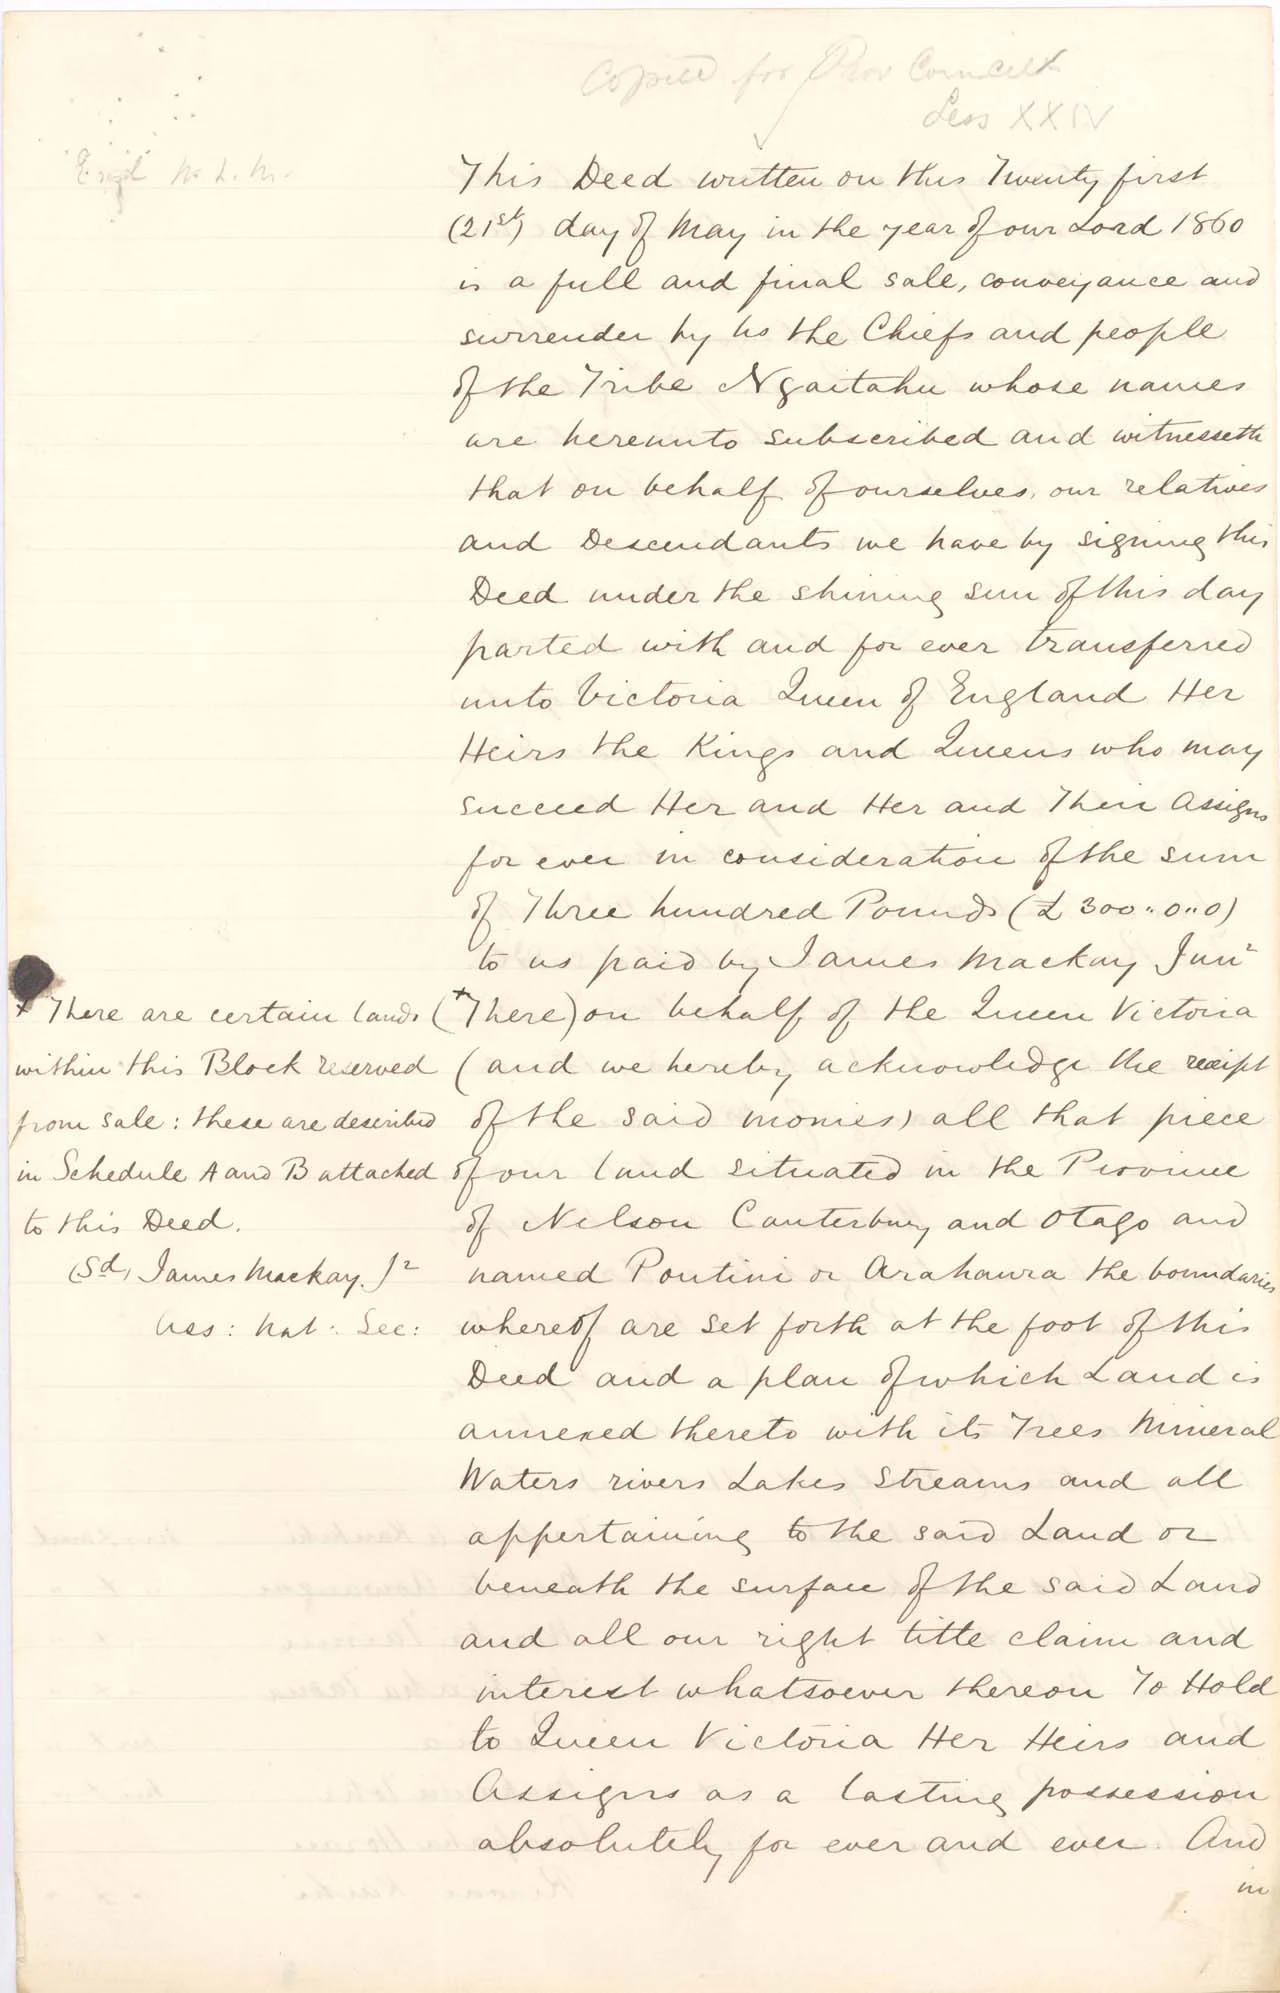 Copied for Prov Council
Sess XXIV
This Deed written on this Twenty first
(21st) day of May in the year of our Lord 1860
is a full and final sale, conveyance and
surrender by us the Chiefs and people
of the Tribe Ngaitahu whose names
are hereunto subscribed and witnesseth
that on behalf of ourselves, our relatives
and Descendants we have by signing this
Deed under the shining sun of this day
parted with and for ever transferred
unto Victoria Queen of England Her
Heirs the Kings and Queens who may
succeed Her and Her and Their Assigns
for ever in consideration of the sum
of Three hundred Pounds (£300"0"0)
to us paid by James Mackay Junr
(+There) on behalf of the Queen Victoria
(and we hereby acknowledge the receipt
of the said monies) all that piece
of our land situated in the Province
of Nelson Canterbury and Otago and
named Poutini or Arahaura the boundaries
whereof are set forth at the foot of this
Deed and a plan of which Land is
annexed thereto with its Trees Mineral
Waters rivers Lakes Streams and all
appertaining to the said Land or
beneath the surface of the said Land
and all our right title claim and
interest whatsoever thereon To Hold
to Queen Victoria Her Heirs and
Assigns as a lasting possession
absolutely for ever and ever. And
in
+ There are certain lands
within this Block reserved
from sale: these are described
in Schedule A and B attached
to this Deed.
(Sd) James Mackay. Jr
Ass: Nat: Sec: